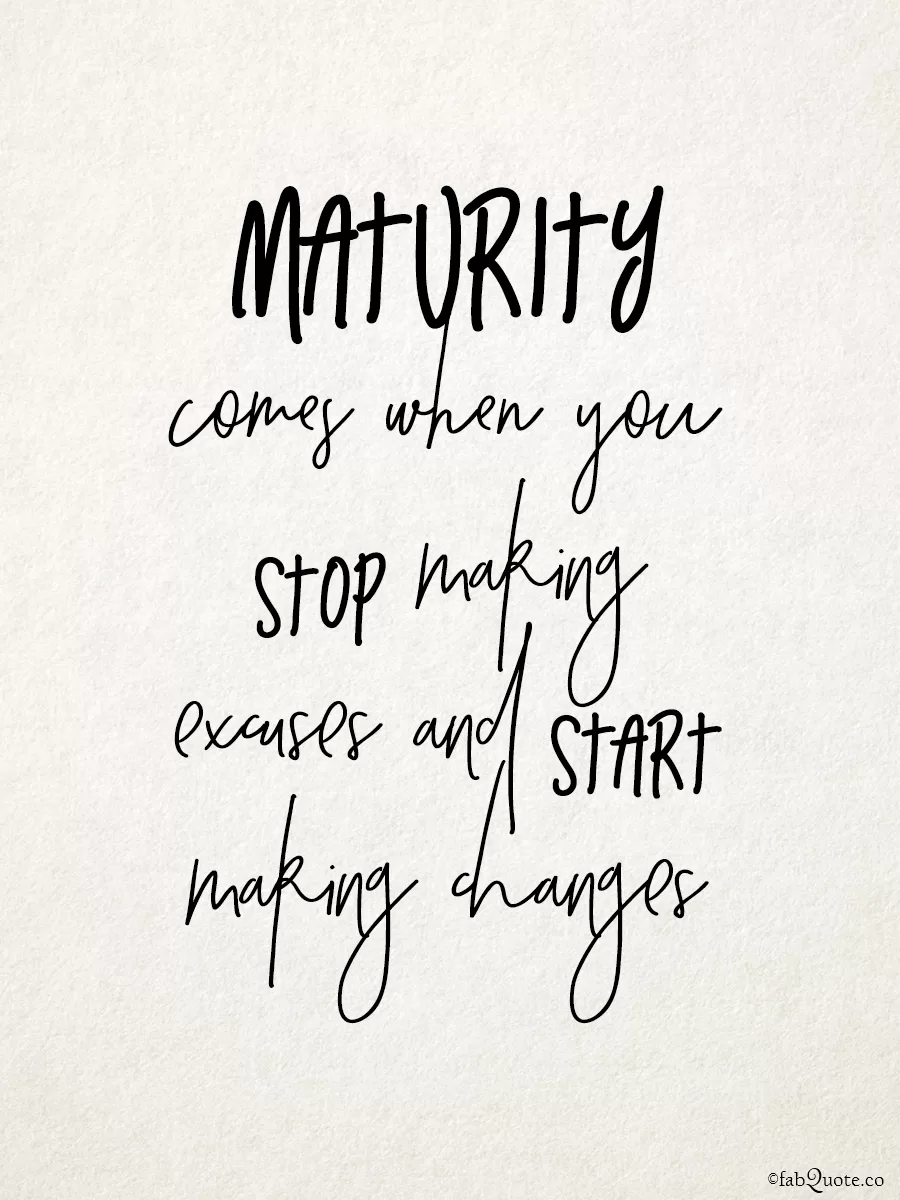 MATURITY
comes when you
STOP making
excuses and START
making changes
©fabQuote.co